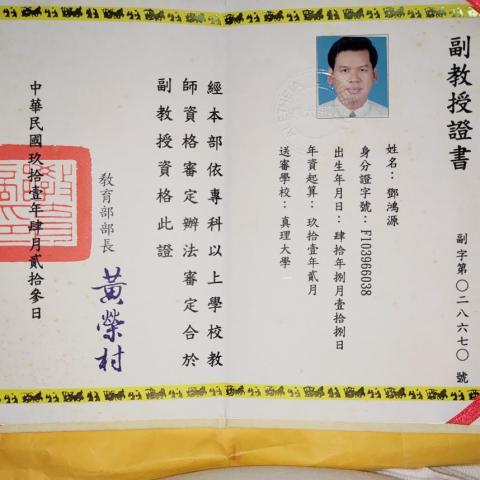 副教授證書
副字第〇二八六七〇號
姓名：鄧鴻源
身分證字號：F103966038
出生年月日：肆拾年捌月壹拾捌日
年資起算：玖拾壹年貳月
送審學校：真理大學
經本部依專科以上學校教
師資格審定辦法審定合於
副教授資格此證
教育部部長
黃榮村
中華民國玖拾壹年肆月貳拾參日